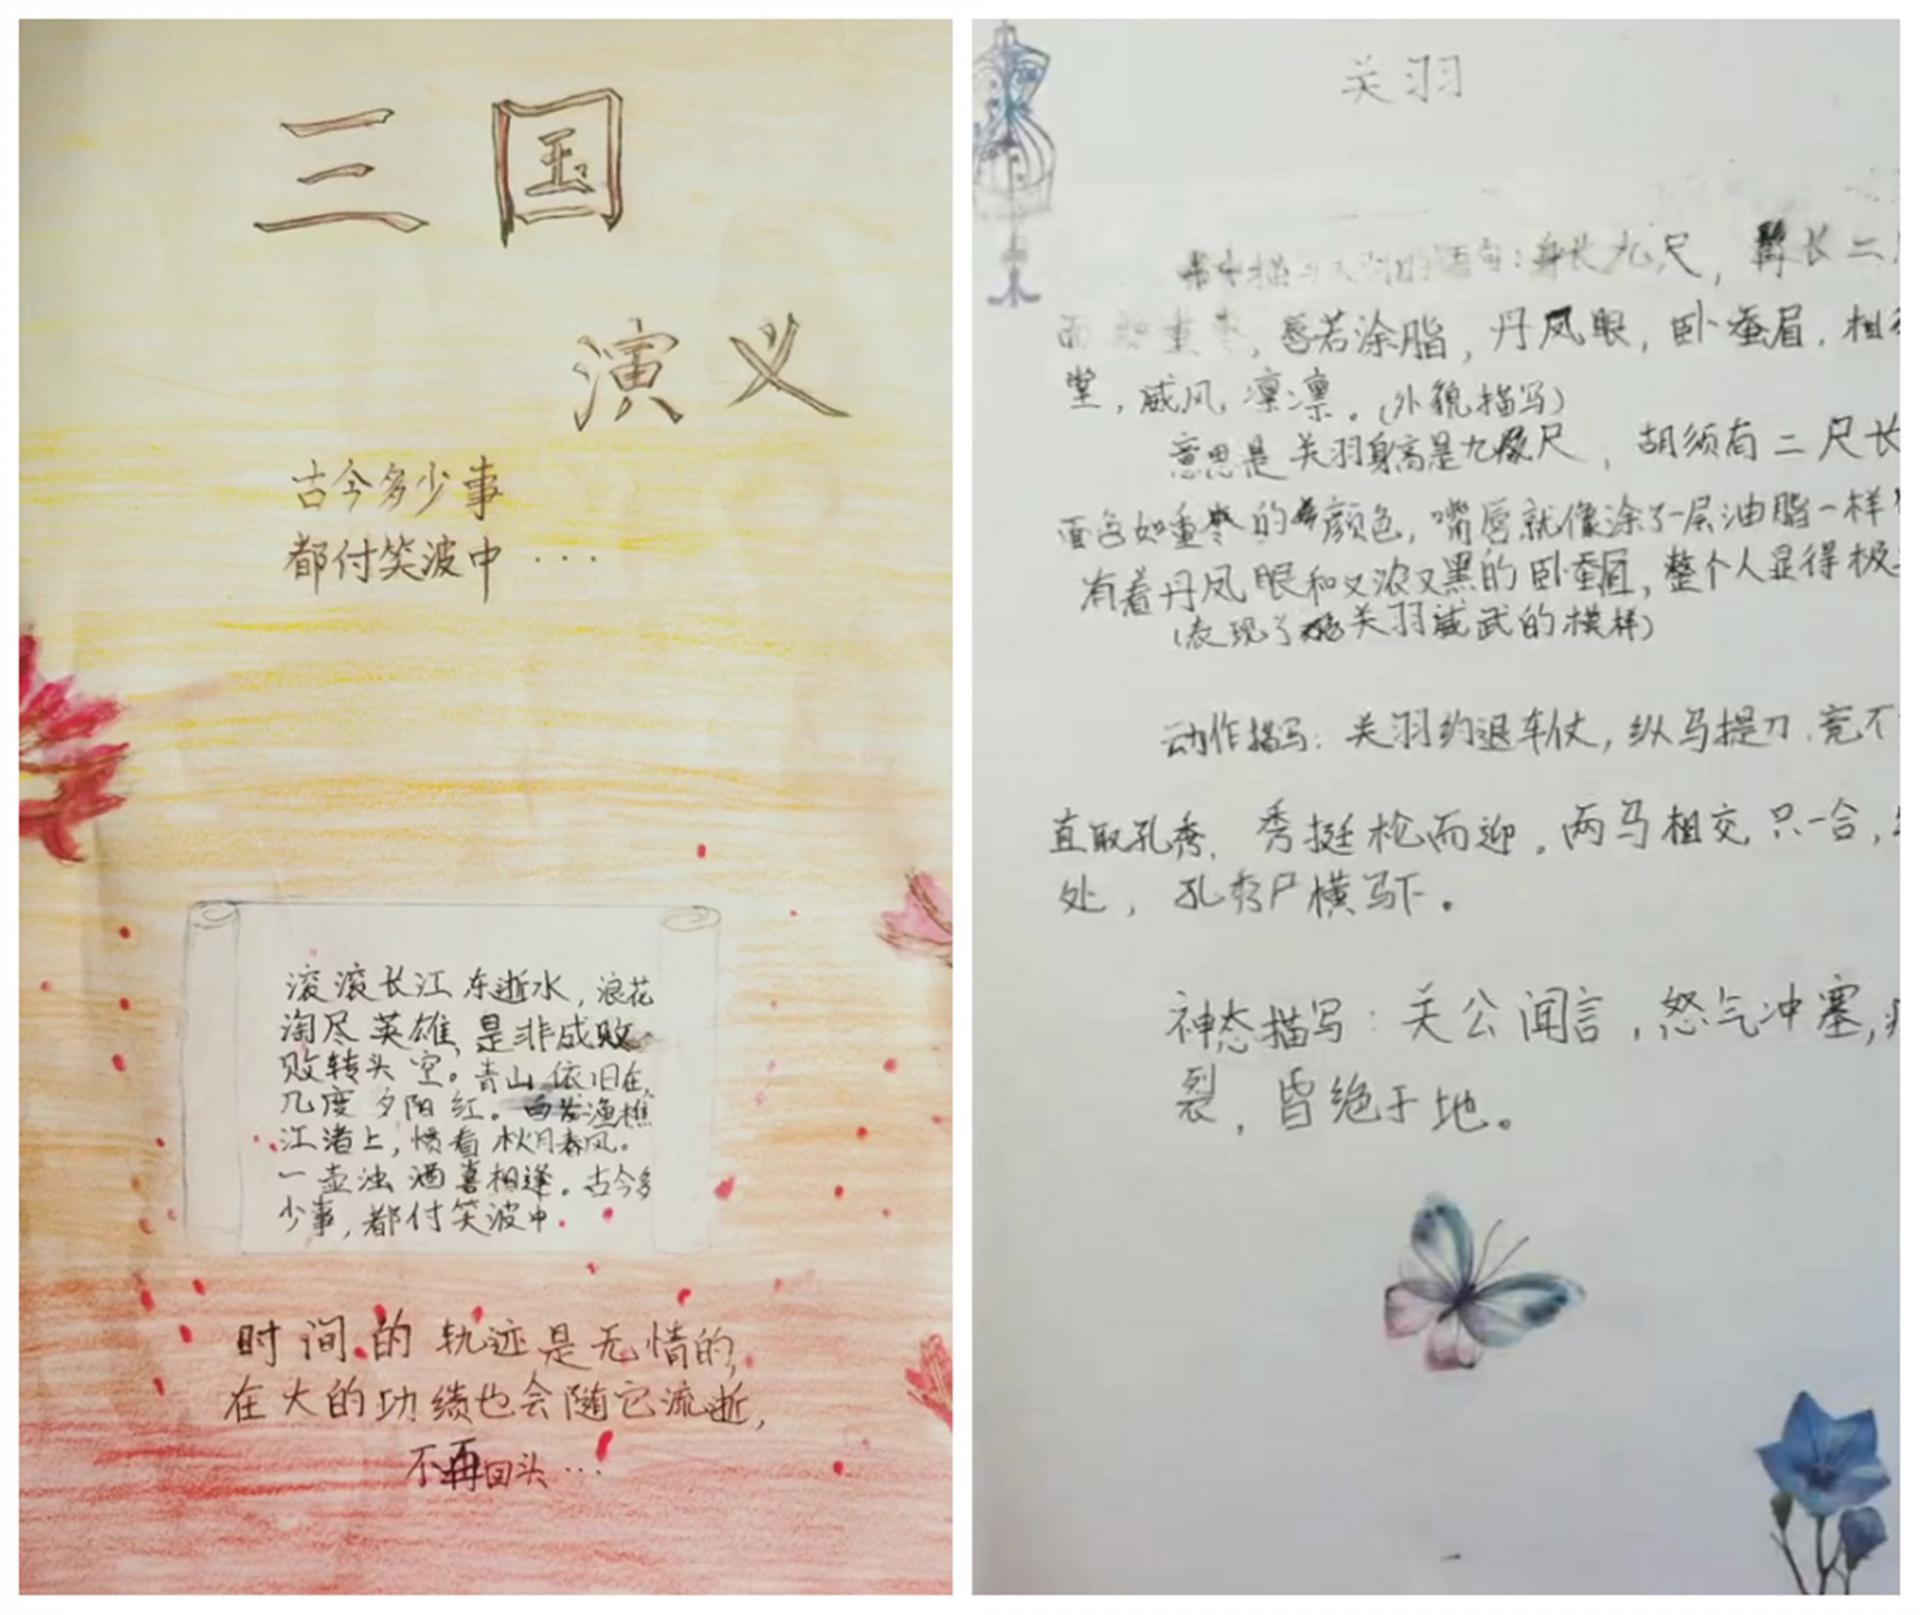 三国
演义
古今多少事
都付笑波中...
滚滚长江东逝水，浪花
淘尽英雄，是非成败
败转头空。青山依旧在，
几度夕阳红。白发渔樵
江渚上，惯看秋月春风。
一壶浊酒喜相逢。古今多
少事，都付笑波中.
时间的轨迹是无情的，
在大的功绩也会随它流逝，
不再回头...
关羽
句：身长九尺，髯长二
面如重枣，唇若涂脂，丹凤眼，卧蚕眉，相
堂，威风凛凛。（外貌描写）
意思是关羽身高是九尺，胡须有二尺长
面色如重枣的颜色，嘴唇就像涂了一层油脂一样
有着丹凤眼和又浓又黑的卧蚕眉，整个人显得极
（表现了关羽威武的模样）
动作描写：关羽约退车仗，纵马提刀，竟不
直取孔秀，秀挺枪而迎。两马相交，只一合，
处，孔秀尸横马下。
神态描写：关公闻言，怒气冲塞，
裂，昏绝于地。